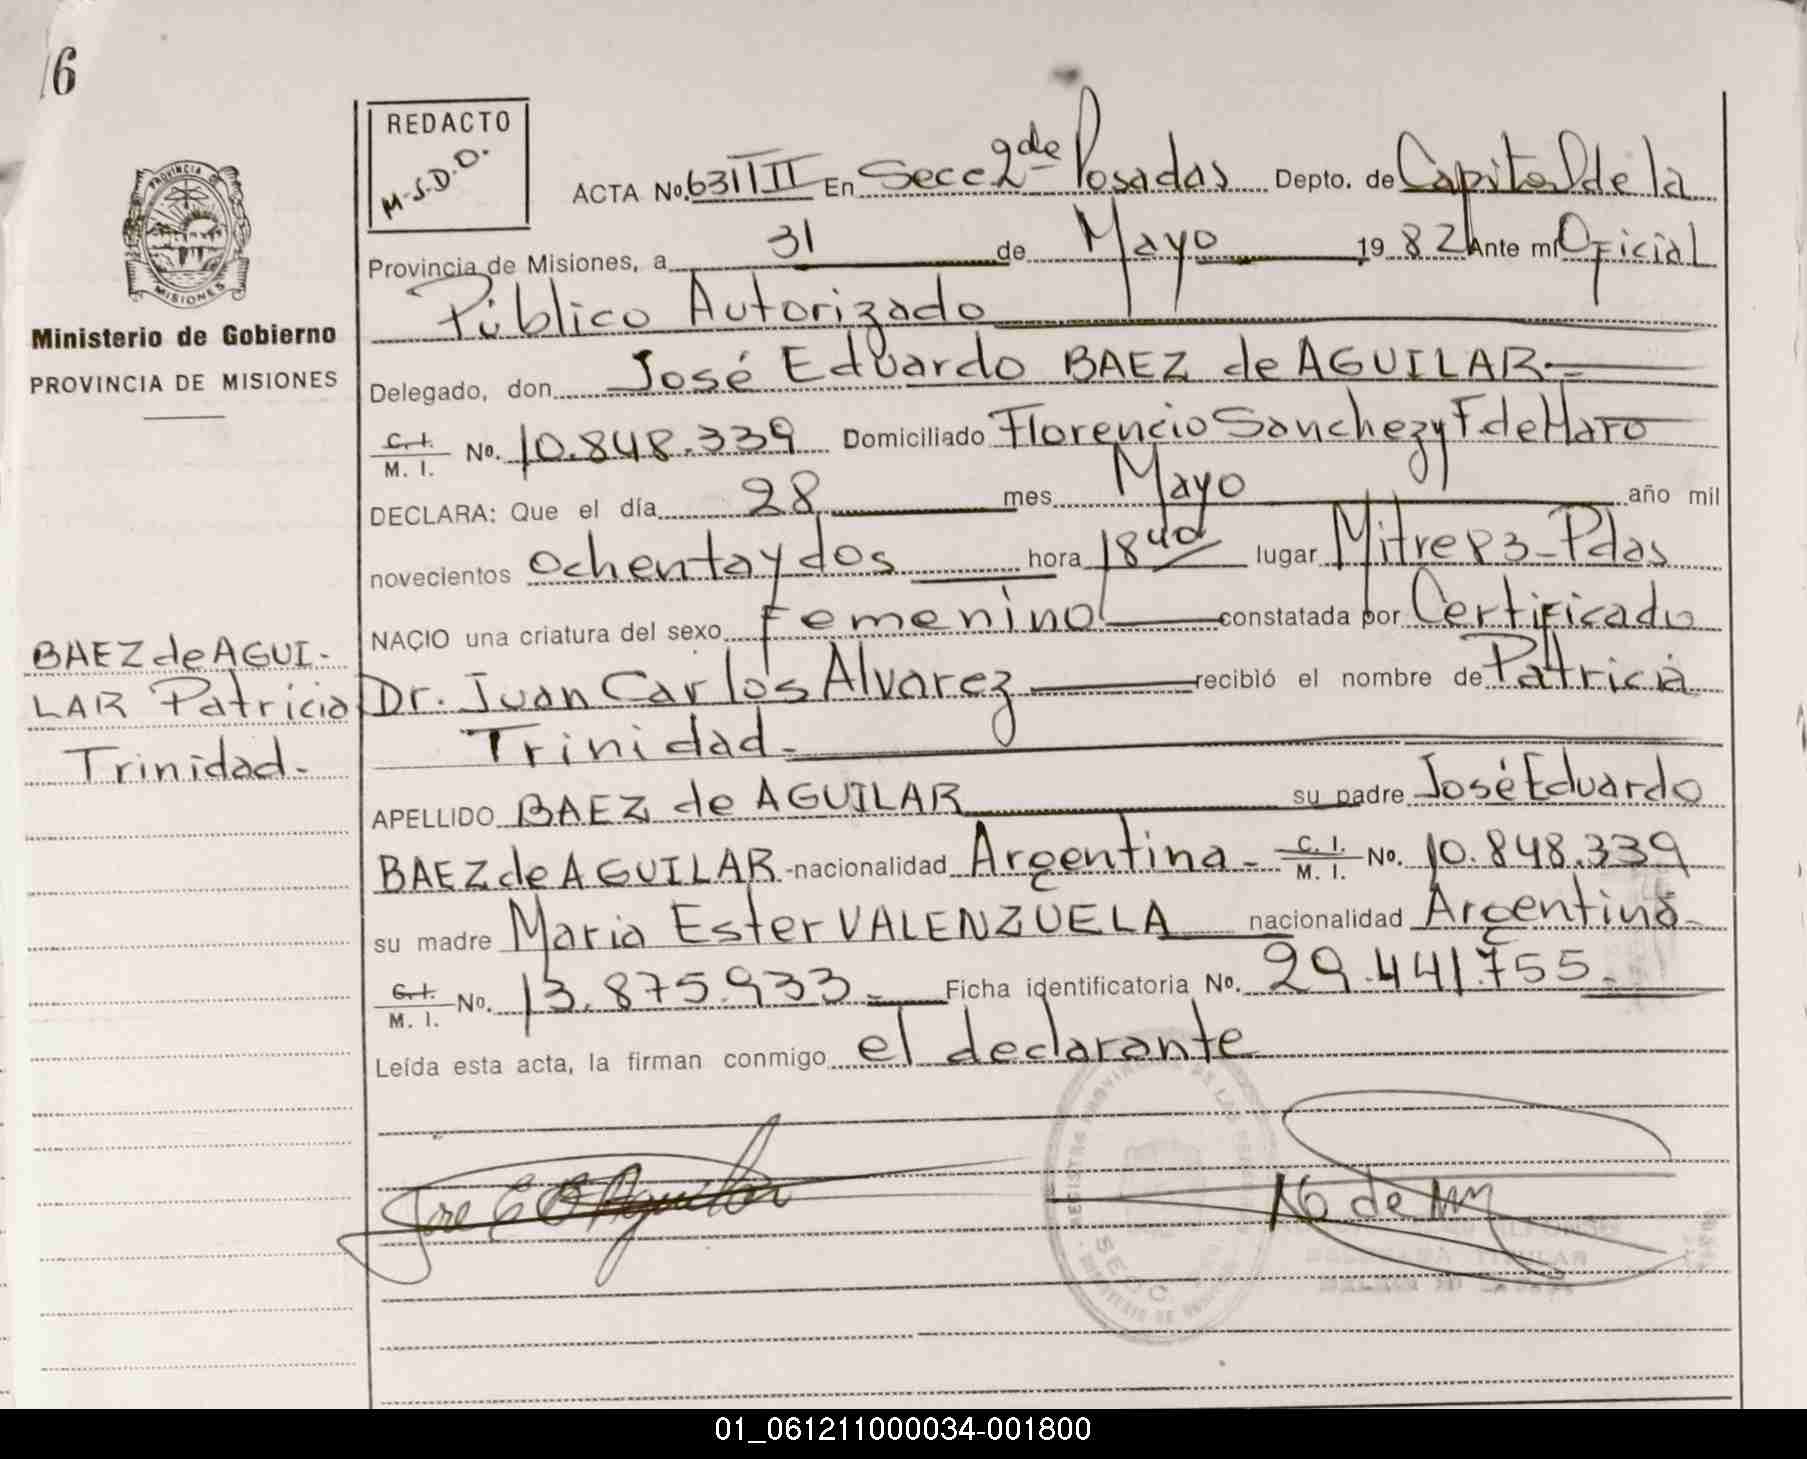 16
REDACTO
M-S.D.O.
PROVINCIA DE
MISIONES
Ministerio de Gobierno
PROVINCIA DE MISIONES
ACTA No. 631 III En Secc 2da de Posadas Depto. de Capital de la
Provincia de Misiones, a 31 de Mayo 1982 Ante mi Oficial
Público Autorizado
Delegado, don José Eduardo BAEZ de AGUILAR
C. I. / M. I. No. 10.848.339 Domiciliado Florencio Sanchez y F. de Haro
DECLARA: Que el día 28 mes Mayo año mil
novecientos ochenta y dos hora 18 40 lugar Mitre 83 - Pdas
NACIO una criatura del sexo Femenino constatada por Certificado
Dr. Juan Carlos Alvarez recibió el nombre de Patricia
Trinidad.
APELLIDO BAEZ de AGUILAR su padre José Eduardo
BAEZ de AGUILAR - nacionalidad Argentina - C. I. / M. I. No. 10.848.339
su madre Maria Ester VALENZUELA nacionalidad Argentina -
C. I. / M. I. No. 13.875.933 - Ficha identificatoria No. 29.441.755.
Leída esta acta, la firman conmigo el declarante
BAEZ de AGUI-
LAR Patricia
Trinidad.
01_061211000034-001800